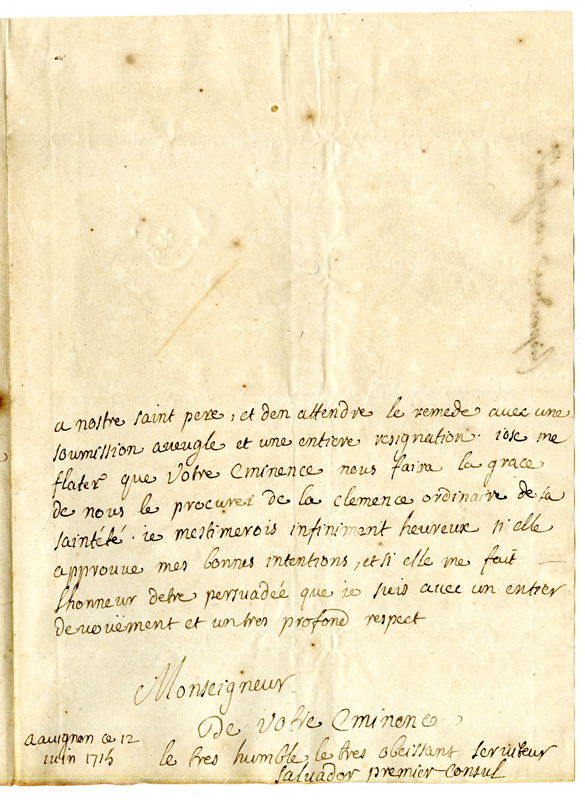 a nostre saint pere, et den attendre le remede avec une
soumission aveugle et une entiere resignation. iose me
flater que Votre Eminence nous faira la grace
de nous le procurer de la clemence ordinaire de sa
saintété. ie mestimerois infiniment heureux si elle
approuve mes bonnes intentions, et si elle me fait
lhonneur detre persuadée que ie suis avec un entier
devouëment et un tres profond respect
Monseigneur
De Votre Eminence
le tres humble le tres obeissant serviteur
salvador premier consul
a avignon ce 12
iuin 1715